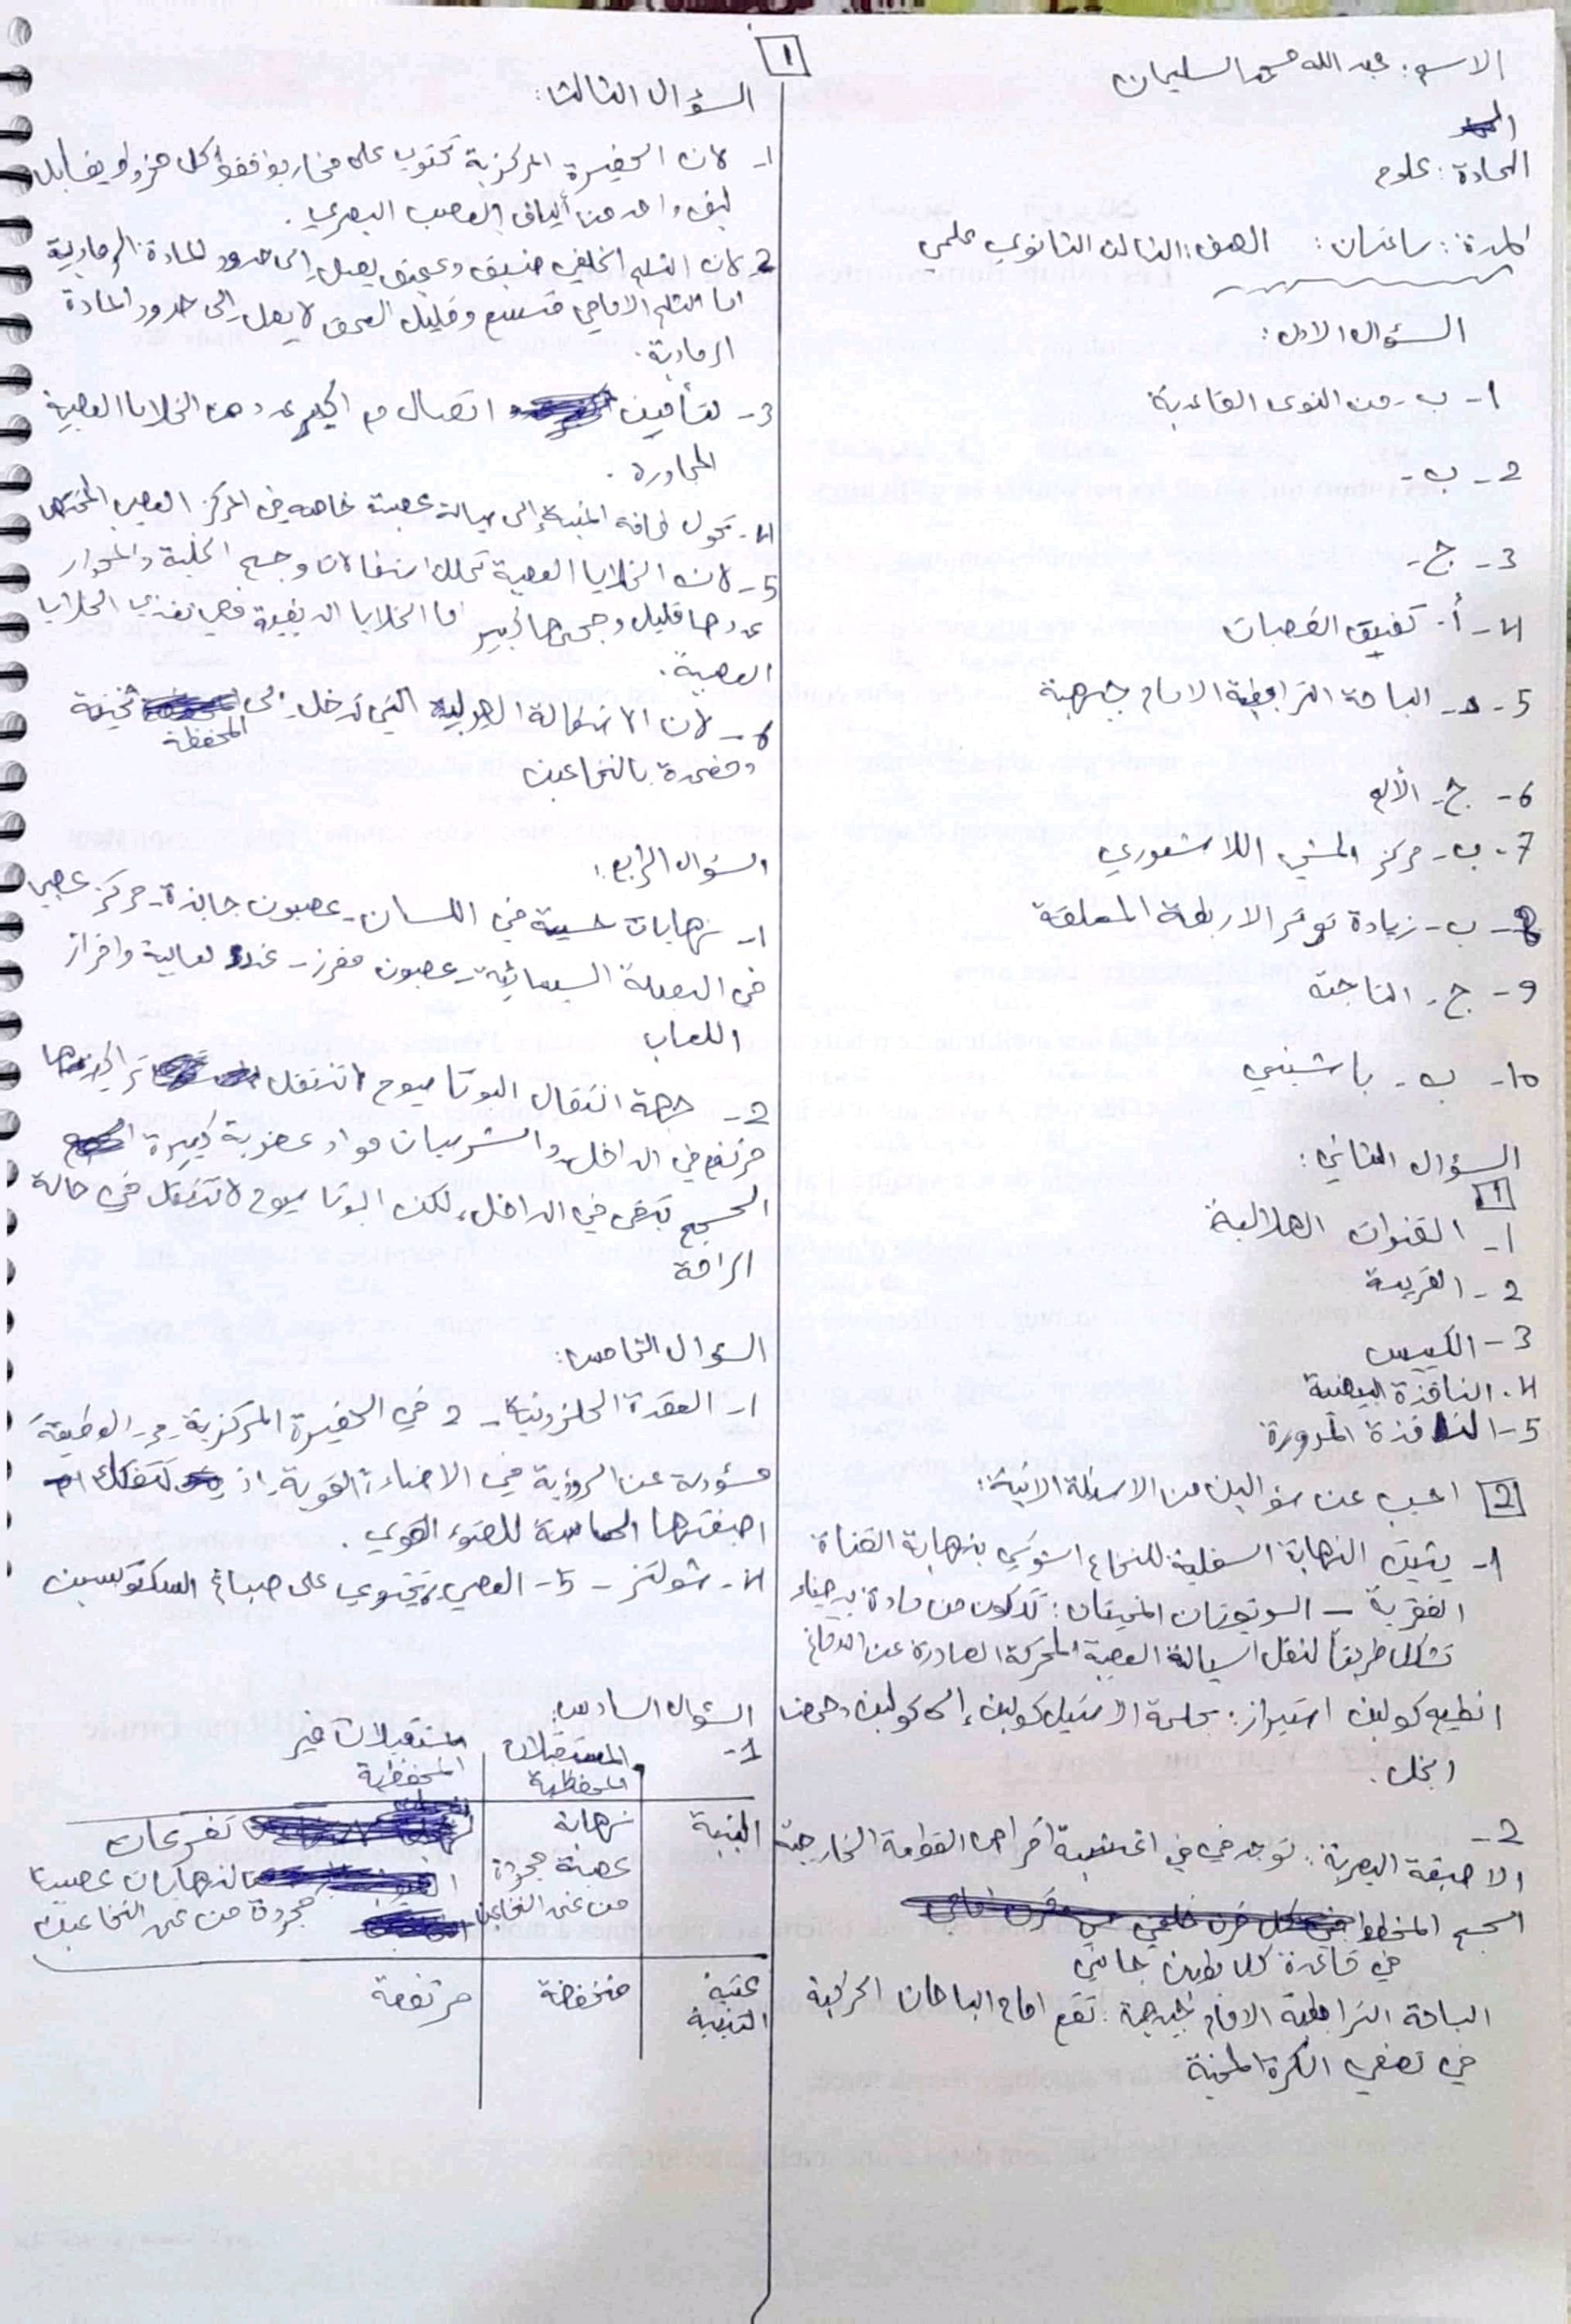 1
الاسم: عبد الله محمد السليمان
المادة: علوم
المدة: ساعتان: الصف: الثالث الثانوي علمي
السؤال الاول:
1- ب- من النوى القاعدية
2- ب-
3- ج-
4- أ- تضيق القصبات
5- د- الباحة الترابطية الامام جبهية
6- ج- الألم
7- ب- مركز المشي اللاشعوري
8- ب- زيادة توتر الاربطة المعلقة
9- ج- الناجتة
10- ب- باشيني
السؤال الثاني:
1
1- القنوات الهلالية
2- القريبة
3- الكييس
4- النافذة البيضية
5- النافذة المدورة
2 اجب عن سؤالين من الاسئلة الاتية:
1- يثبت النهاية السفلية للنخاع الشوكي بنهاية القناة
الفقرية - السويقتان المخيتان: تتكون من مادة بيضاء
تشكل طريقاً لنقل السيالة العصبية المحركة الصادرة عن الدماغ
انظيم كولين استيراز: حلمة الاستيل كولين إلى كولين وحمض
الخل.
2-
الاصبغة البصرية: توجد في في اغشية اقراص القطعة الخارجية
الجسم المخطط
في قاعدة كل بطين جانبي
الباحة الترابطية الامام جبهية: تقع امام الباحات الحركية
في نصفي الكرة المخية
السؤال الثالث:
1- لان الحفيرة المركزية تحتوي على مخاريط فقط وكل مخروط يقابل
ليف واحد من ألياف العصب البصري.
2- لان الثلم الخلفي ضيق وعميق يصل إلى حدود المادة الرمادية
اما الثلم الامامي فتسع وقليل العمق لا يصل إلى حدود المادة
الرمادية.
3- لتأمين اتصال مع اكبر عدد من الخلايا العصبية
المجاورة.
4- تحول طاقة المنبه إلى سيالة عصبية خاصة في المركز العصبي المختص
5- لان الخلايا العصبية تملك استطالات وجسم الخلية والمحوار
عددها قليل وحجمها كبير اما الخلايا الدبقية فهي تغذي الخلايا
العصبية.
6- لان الاستطالة الهيولية التي تدخل إلى المحفظة ثخينة
ومغمدة بالنخاعين
السؤال الرابع:
1- نهايات حسية في اللسان - عصبون جابذة - مركز عصبي
في البصلة السيسائية - عصبون مفرز - غدد لعابية وافراز
اللعاب
2- جهة انتقال البوتاسيوم تنتقل تركيزها
مرتفع في الداخل والشرسبات مواد عضوية كبيرة
الحجم تبقى في الداخل، لكن البوتاسيوم لا تنتقل في حالة
الراحة
السؤال الخامس:
1- العقدة الحلزونية - 2 في الحفيرة المركزية - 3- الوظيفة
مسؤولة عن الرؤية في الاضاءة القوية. اذ تتفكك
اصبغتها الحساسة للضوء القوي.
4- شولتز - 5- العصي تحتوي على صباغ السكوتوبسين
السؤال السادس:
1-
المستقبلات محفظية
المستقبلات غير المحفظية
البنية
نهاية
عصبية مجردة
من غمد النخاعين
تفرعات
لنهايات عصبية
مجردة من غمد النخاعين
عتبة التنبيه
منخفضة
مرتفعة